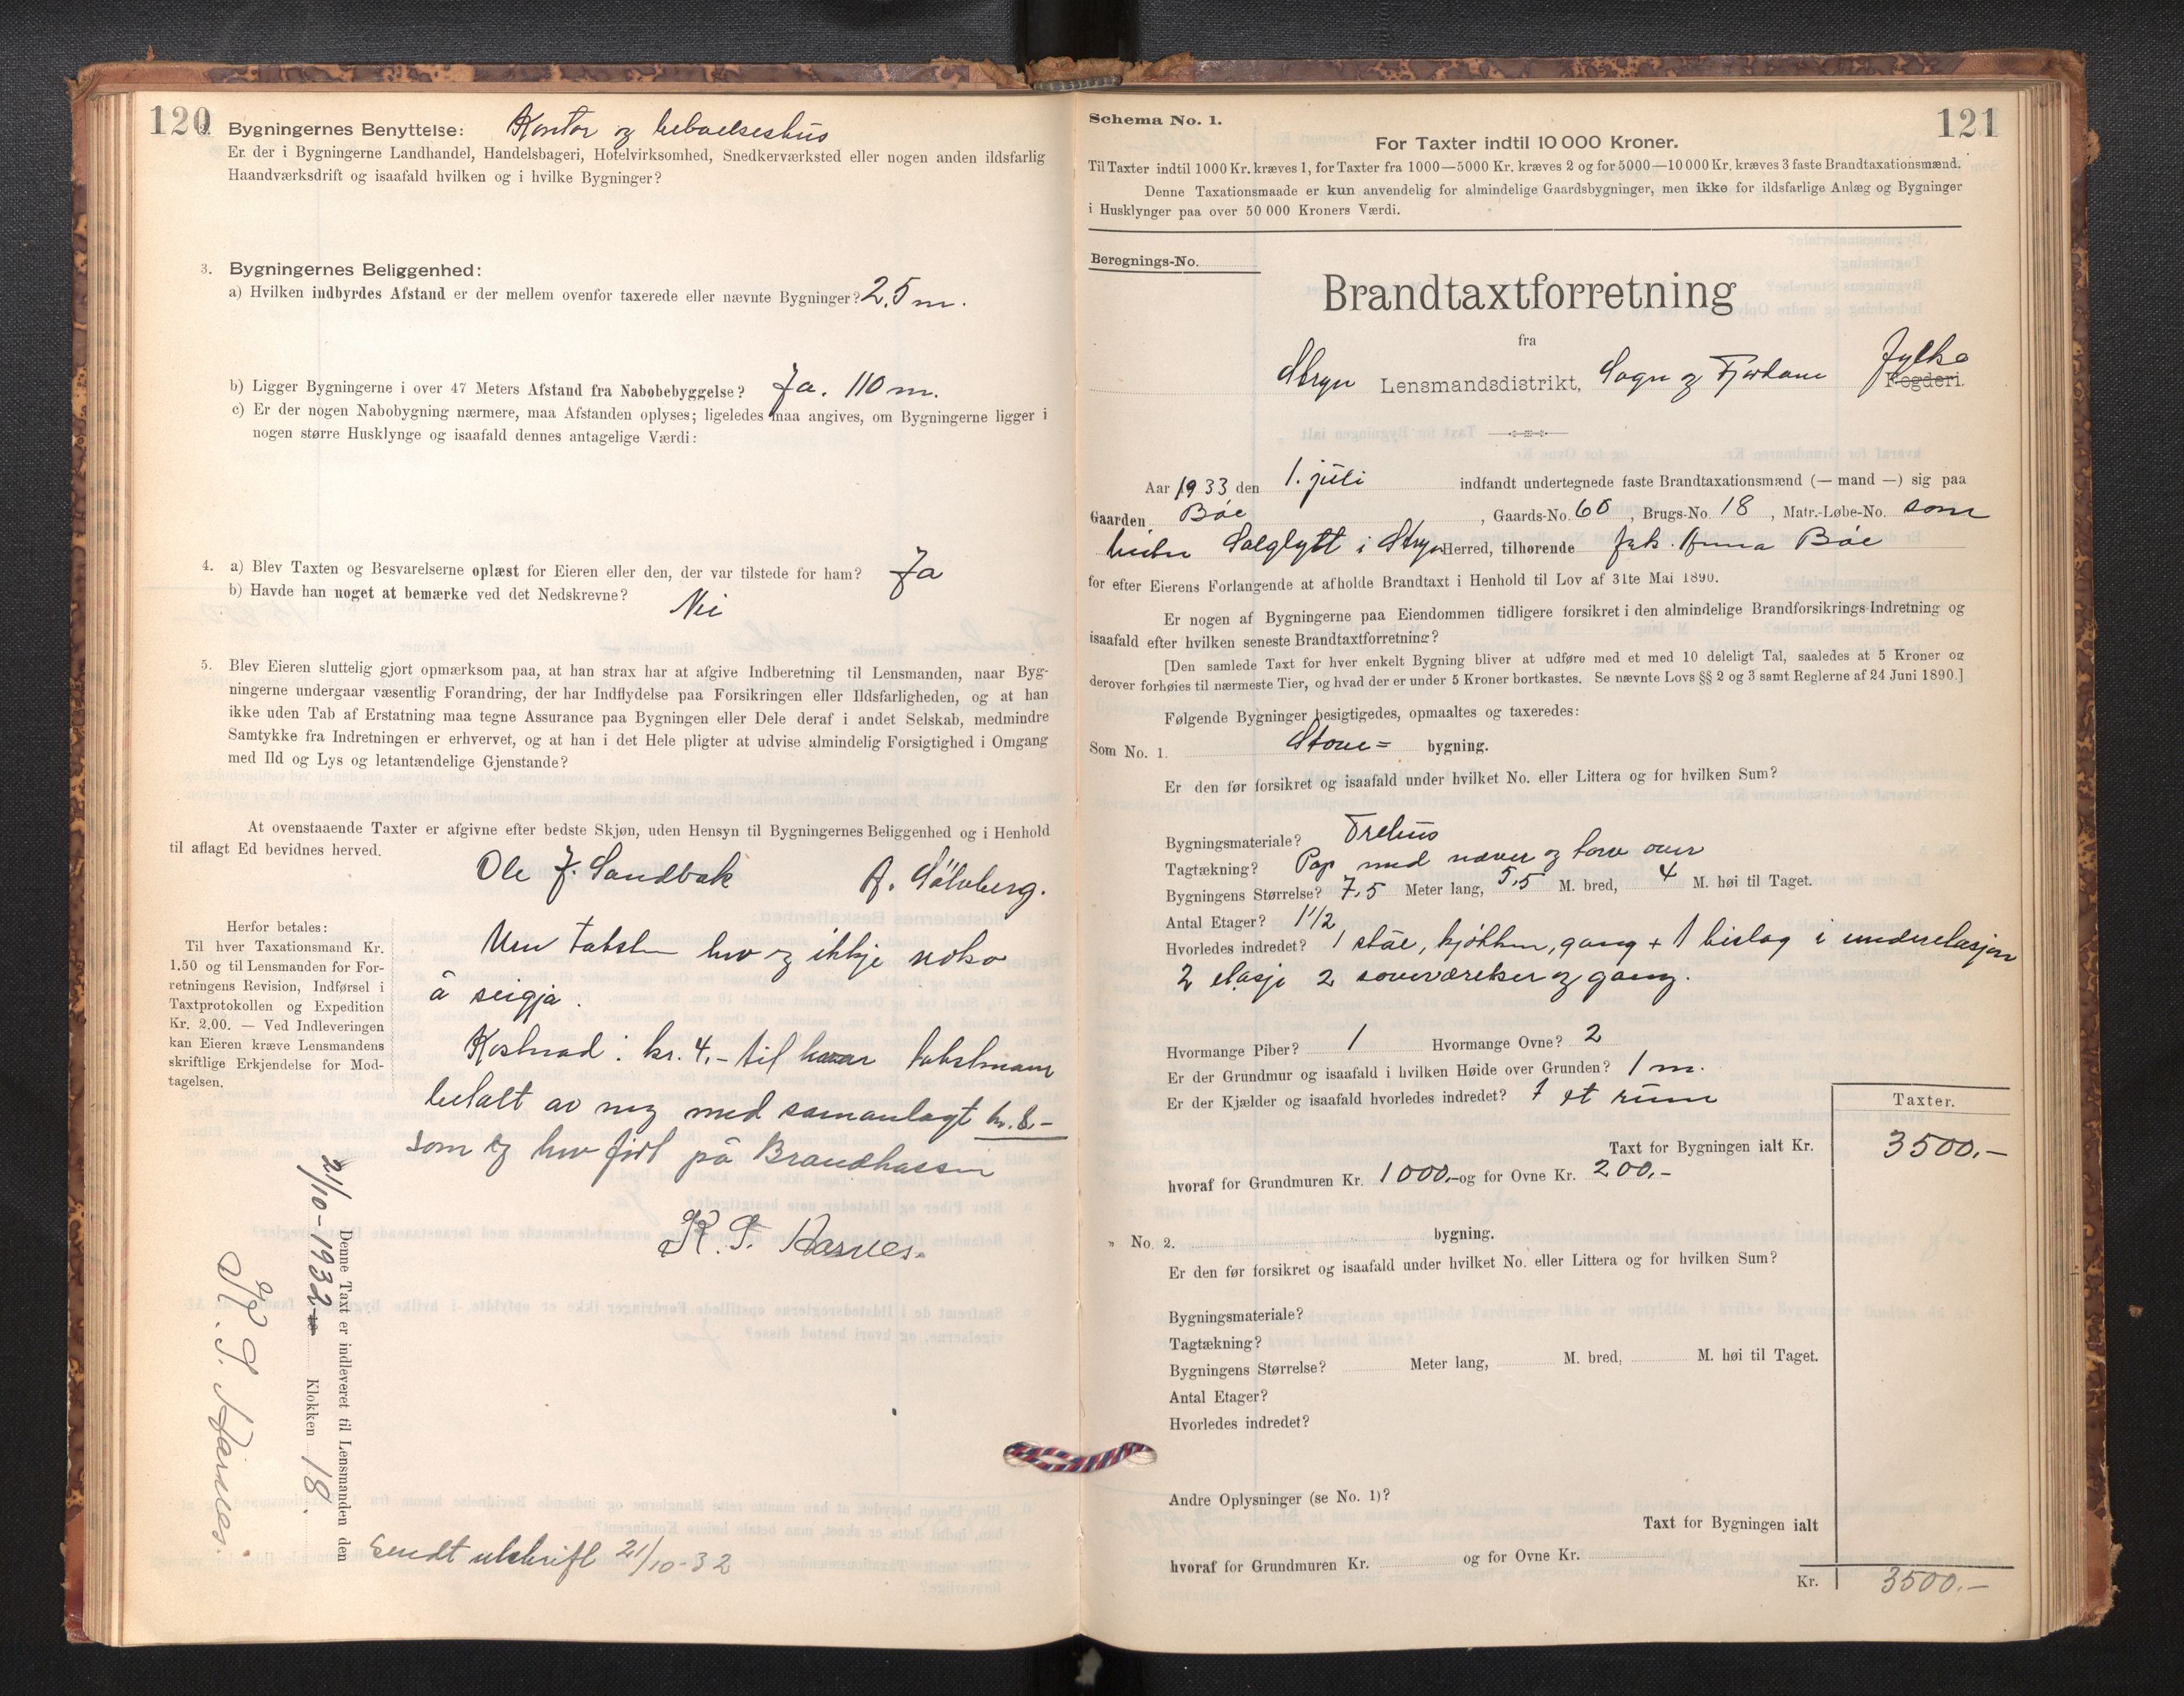 120
Bygningernes Benyttelse: Kontor og beboelseshus
Er der i Bygningerne Landhandel, Handelsbageri, Hotelvirksomhed, Snedkerværksted eller nogen anden ildsfarlig
Haandværksdrift og isaafald hvilken og i hvilke Bygninger?
3. Bygningernes Beliggenhed:
a) Hvilken indbyrdes Afstand er der mellem ovenfor taxerede eller nævnte Bygninger? 2,5 m.
b) Ligger Bygningerne i over 47 Meters Afstand fra Nabobebyggelse? Ja. 110 m.
c) Er der nogen Nabobygning nærmere, maa Afstanden oplyses; ligeledes maa angives, om Bygningerne ligger i
nogen større Husklynge og isaafald dennes antagelige Værdi:
4. a) Blev Taxten og Besvarelserne oplæst for Eieren eller den, der var tilstede for ham? Ja
b) Havde han noget at bemærke ved det Nedskrevne? Nei
5. Blev Eieren sluttelig gjort opmærksom paa, at han strax har at afgive Indberetning til Lensmanden, naar Byg-
ningerne undergaar væsentlig Forandring, der har Indflydelse paa Forsikringen eller Ildsfarligheden, og at han
ikke uden Tab af Erstatning maa tegne Assurance paa Bygningen eller Dele deraf i andet Selskab, medmindre
Samtykke fra Indretningen er erhvervet, og at han i det Hele pligter at udvise almindelig Forsigtighed i Omgang
med Ild og Lys og letantændelige Gjenstande?
At ovenstaaende Taxter er afgivne efter bedste Skjøn, uden Hensyn til Bygningernes Beliggenhed og i Henhold
til aflagt Ed bevidnes herved.
Ole J. Sandbak A. Sølvberg.
Herfor betales:
Til hver Taxationsmand Kr.
1.50 og til Lensmanden for For-
retningens Revision, Indførsel i
Taxtprotokollen og Expedition
Kr. 2.00. — Ved Indleveringen
kan Eieren kræve Lensmandens
skriftlige Erkjendelse for Mod-
tagelsen.
Um taksten hev eg ikkje noko
å seigja.
Kostnad: kr. 4,- til kvar takstmann
betalt av meg med samanlagt kr. 8.-
som eg hev ført på Brandkassen
K. S. Aarnes.
Denne Taxt er indleveret til Lensmanden den
21/10-1932 Klokken 18.
K. S. Aarnes.
Sendt utskrift 21/10-32
121
Schema No. 1.
For Taxter indtil 10 000 Kroner.
Til Taxter indtil 1000 Kr. kræves 1, for Taxter fra 1000—5000 Kr. kræves 2 og for 5000—10 000 Kr. kræves 3 faste Brandtaxationsmænd.
Denne Taxationsmaade er kun anvendelig for almindelige Gaardsbygninger, men ikke for ildsfarlige Anlæg og Bygninger
i Husklynger paa over 50 000 Kroners Værdi.
Beregnings-No.
Brandtaxtforretning
fra
Stryn Lensmandsdistrikt, Sogn og Fjordane Fylke Fogderi.
Aar 1933 den 1. juli indfandt undertegnede faste Brandtaxationsmænd (— mand —) sig paa
Gaarden Bøe, Gaards-No. 60, Brugs-No. 18, Matr.-Løbe-No. som
heiter Solglytt i Stryn Herred, tilhørende frk. Anna Bøe
for efter Eierens Forlangende at afholde Brandtaxt i Henhold til Lov af 31te Mai 1890.
Er nogen af Bygningerne paa Eiendommen tidligere forsikret i den almindelige Brandforsikrings-Indretning og
isaafald efter hvilken seneste Brandtaxtforretning?
[Den samlede Taxt for hver enkelt Bygning bliver at udføre med et med 10 deleligt Tal, saaledes at 5 Kroner og
derover forhøies til nærmeste Tier, og hvad der er under 5 Kroner bortkastes. Se nævnte Lovs §§ 2 og 3 samt Reglerne af 24 Juni 1890.]
Følgende Bygninger besigtigedes, opmaaltes og taxeredes:
Som No. 1. Stove= bygning.
Er den før forsikret og isaafald under hvilket No. eller Littera og for hvilken Sum?
Bygningsmateriale? Trehus
Tagtækning? Pap med næver og torv over
Bygningens Størrelse? 7,5 Meter lang, 5,5 M. bred, 4 M. høi til Taget.
Antal Etager? 1 1/2
Hvorledes indredet? 1 stue, kjøkken, gang + 1 bislag i underetasjen
2 etasje 2 soveværelser og gang.
Hvormange Piber? 1 Hvormange Ovne? 2
Er der Grundmur og isaafald i hvilken Høide over Grunden? 1 m.
Er der Kjælder og isaafald hvorledes indredet? 1 et rum
Taxter.
Taxt for Bygningen ialt Kr. 3500,-
hvoraf for Grundmuren Kr. 1000,- og for Ovne Kr. 200,-
" No. 2. bygning.
Er den før forsikret og isaafald under hvilket No. eller Littera og for hvilken Sum?
Bygningsmateriale?
Tagtækning?
Bygningens Størrelse? Meter lang, M. bred, M. høi til Taget.
Antal Etager?
Hvorledes indredet?
Andre Oplysninger (se No. 1)?
Taxt for Bygningen ialt
hvoraf for Grundmuren Kr. og for Ovne Kr.
Kr. 3500.-